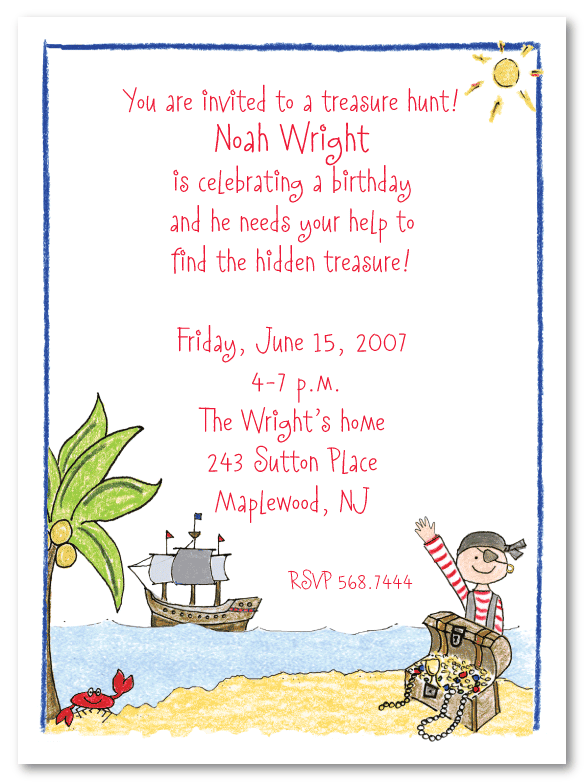 You are invited to a treasure hunt!
Noah Wright
is celebrating a birthday
and he needs your help to
find the hidden treasure!
Friday, June 15, 2007
4-7 p.m.
The Wright's home
243 Sutton Place
Maplewood, NJ
RSVP 568.7444